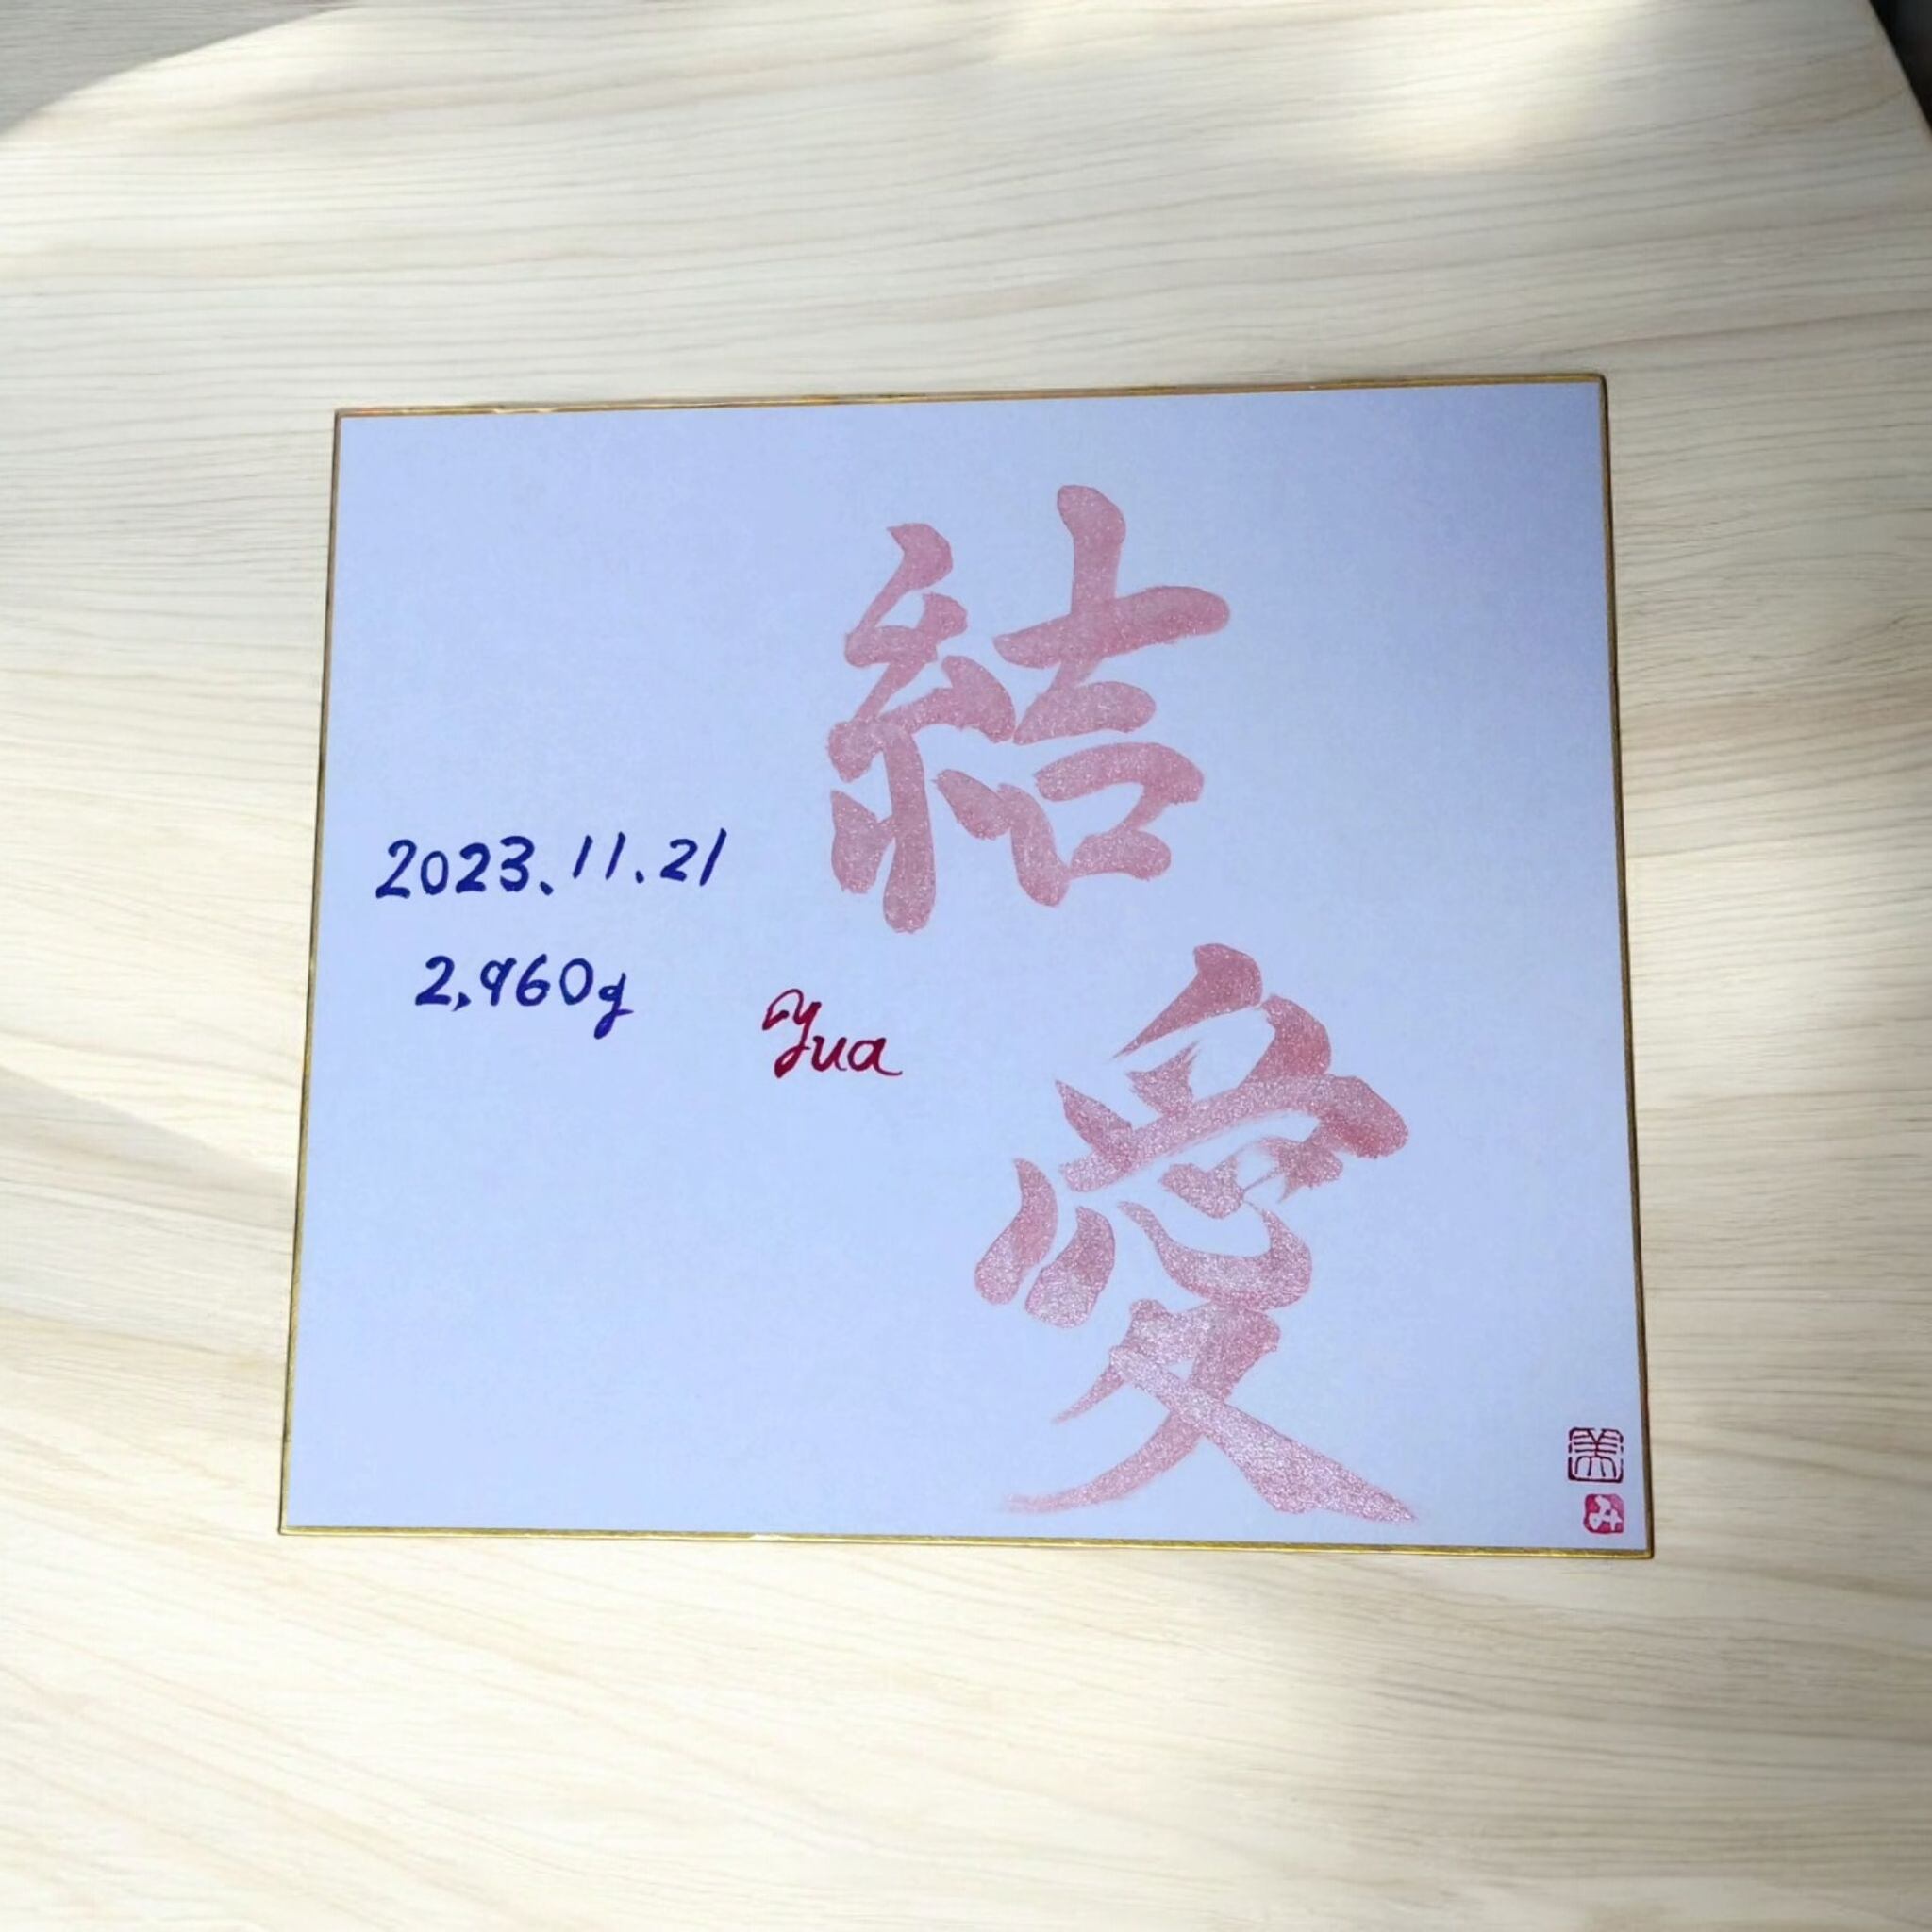 結愛
2023.11.21
2,960g
Yua
美
み